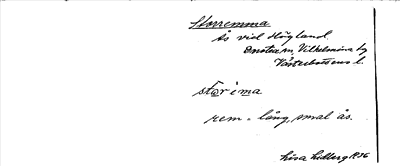 Storremma
Ås vid Högland.
Dorotea sn, Vilhelmina tg
Västerbottens l.
storima
rem = lång, smal ås.
Lisa Lidberg 1936